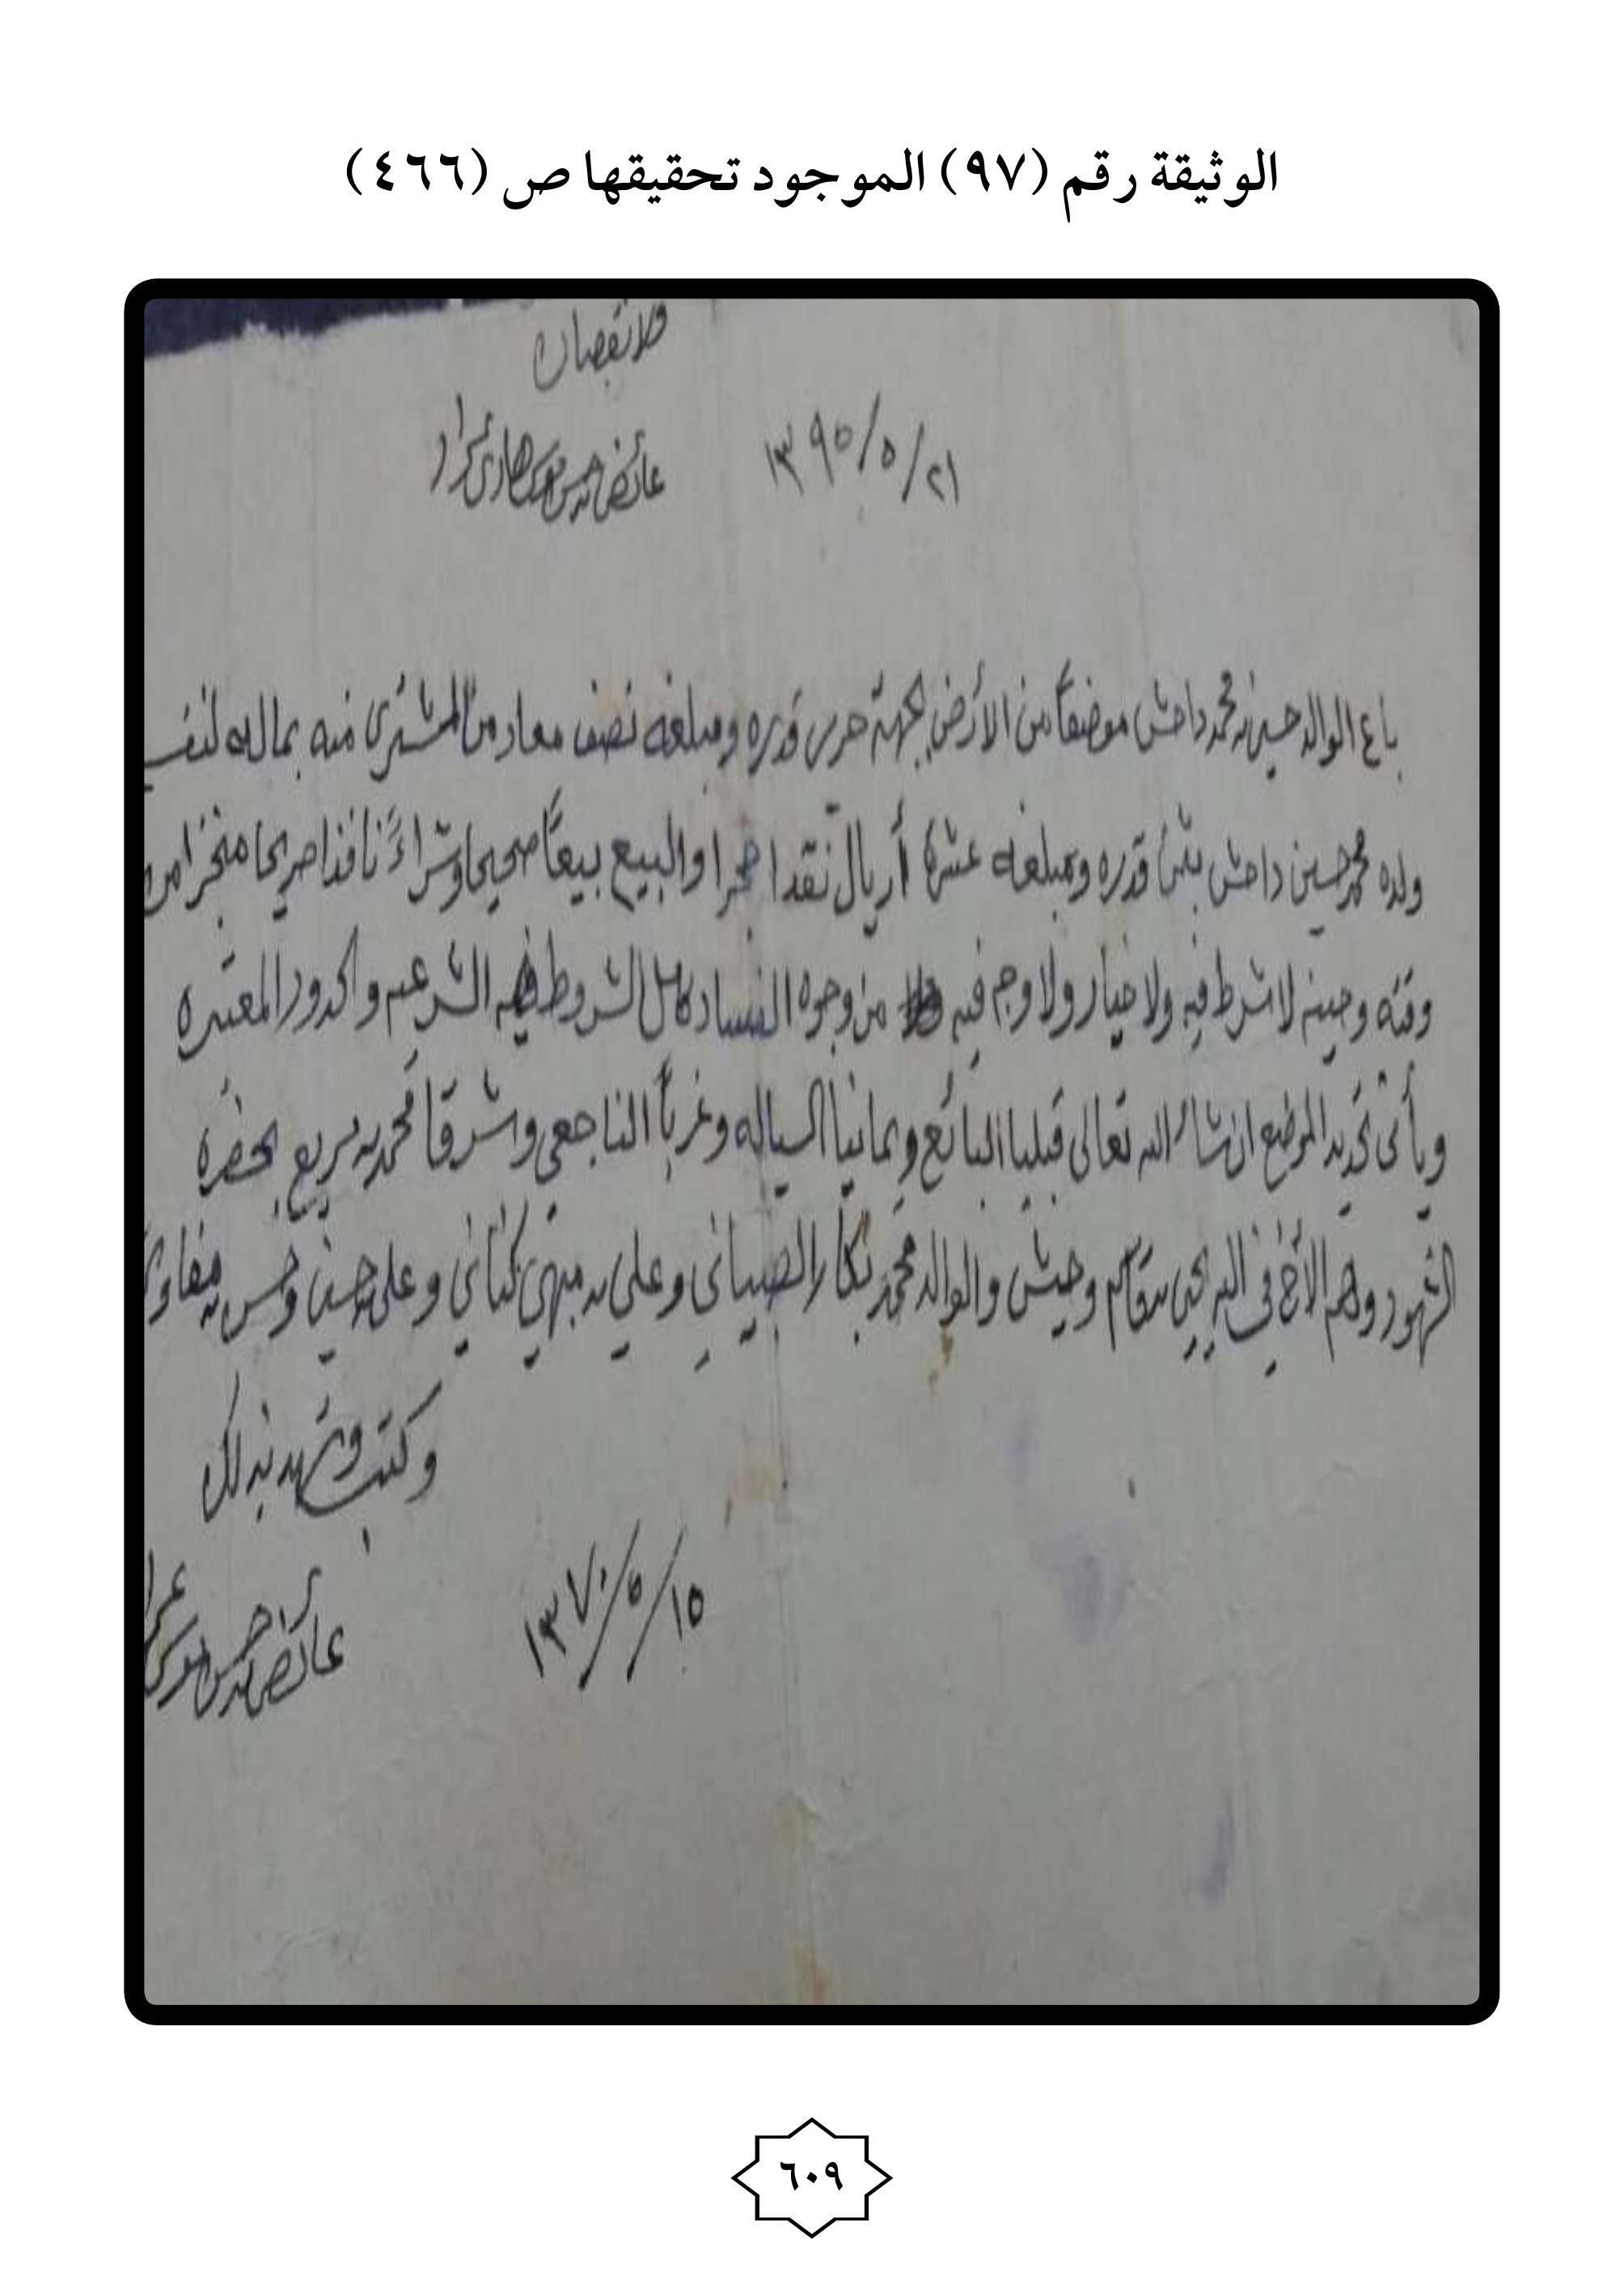 الوثيقة رقم (٩٧) الموجود تحقيقها ص (٤٦٦)
ولا نقصان
٢١/٥/١٣٩٥
عائض بن حسن هادي
باع الوالد حسين بن محمد داحش موضعاً من الأرض بجهة قدره ومبلغه نصف معاد من المشتري منه بماله لنفسه
ولده محمد حسين داحش بثمن قدره ومبلغه عشرة أريال نقدا حجرا والبيع بيعاً صحيحا وشراءً نافذا صريحا منجزا من
وقته وحينه لا شرط فيه ولا خيار ولا وجم فيه من وجوه الفساد كامل الشروط الشرعيه والحدود المعتبره
ويأتي تحديد الموضع ان شاء الله تعالى قبليا البائع ويمانيا السياله وغرباً الناجعي وشرقا محمد بن سريع بحضرة
الشهود وهم الأخ في الله يحيى بن قاسم وحيش والوالد محمد بكار الصبياني وعلي بن مبهي كناني وعلي حسين وحسن بن مفاوي
وكتب وشهد بذلك
١٥/٥/١٣٧٠
عائض بن حسن
٦٠٩